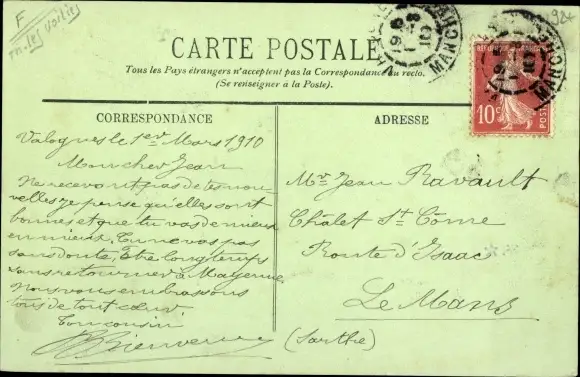 F
CARTE POSTALE
Tous les Pays étrangers n'acceptent pas la Correspondance au recto.
(Se renseigner à la Poste).
RÉPUBLIQUE FRANÇAISE
10c
POSTES
MANCHE
CORRESPONDANCE
Valognes le 1er Mars 1910
Mon cher Jean
Ne recevant pas de tes nou-
velles je pense qu'elles sont
bonnes et que tu vas de mieux
en mieux. Tu ne vas pas
sans doute, être longtemps
sans retourner à Mayenne
Nous vous embrassons
tous de tout cœur
Ton cousin
Bienvenu
ADRESSE
Mr Jean Ravault
Châlet St Côme
Route d'Isaac
Le Mans
(Sarthe)